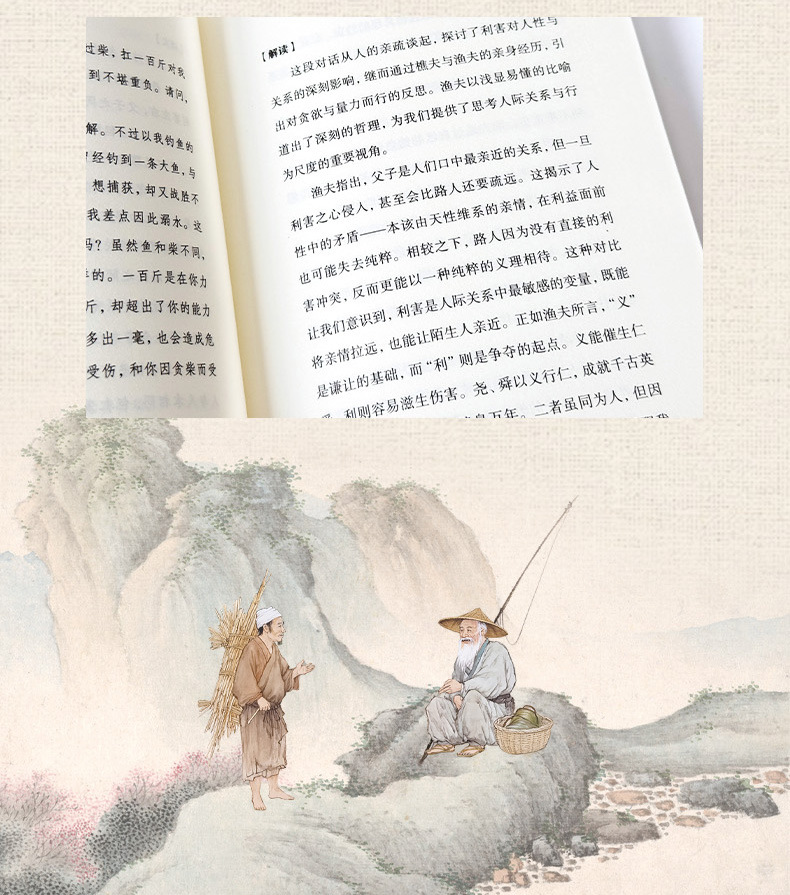 过柴，扛一百斤对我
到不堪重负。请问，
解。不过以我钓鱼的
曾经钓到一条大鱼，与
想捕获，却又战胜不
我差点因此溺水。这
吗？虽然鱼和柴不同，
的。一百斤是在你力
斤，却超出了你的能力
多出一毫，也会造成危
受伤，和你因贪柴而受
【解读】
这段对话从人的亲疏谈起，探讨了利害对人性与
关系的深刻影响，继而通过樵夫与渔夫的亲身经历，引
出对贪欲与量力而行的反思。渔夫以浅显易懂的比喻
道出了深刻的哲理，为我们提供了思考人际关系与行
为尺度的重要视角。
渔夫指出，父子是人们口中最亲近的关系，但一旦
利害之心侵人，甚至会比路人还要疏远。这揭示了人
性中的矛盾——本该由天性维系的亲情，在利益面前
也可能失去纯粹。相较之下，路人因为没有直接的利
害冲突，反而更能以一种纯粹的义理相待。这种对比
让我们意识到，利害是人际关系中最敏感的变量，既能
将亲情拉远，也能让陌生人亲近。正如渔夫所言，“义”
是谦让的基础，而“利”则是争夺的起点。义能催生仁
利则容易滋生伤害。尧、舜以义行仁，成就千古英
万年。二者虽同为人，但因